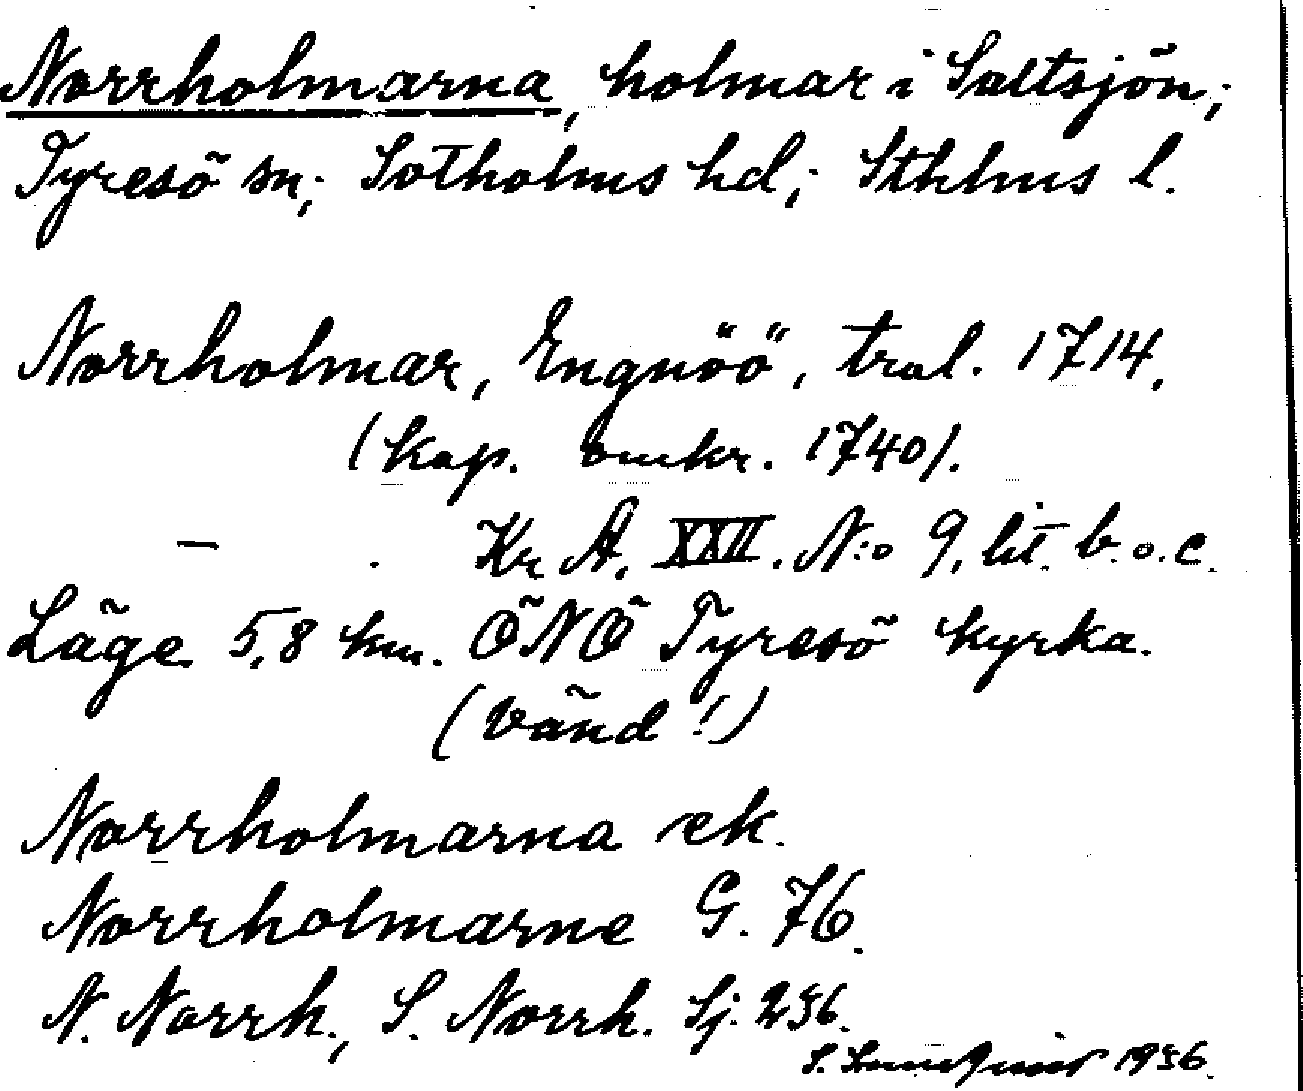 Norrholmarna, holmar i Saltsjön;
Tyresö sn; Sotholms hd; Sthlms l.
Norrholmar, Engnöö, tral. 1714.
(kop. omkr. 1740).
— . Kr A. XXII. N:o 9. lit. b.o.c.
Läge 5,8 km. ÖNÖ Tyresö kyrka.
(Vänd!)
Norrholmarna ek.
Norrholmarne G. 76.
N. Norrh., S. Norrh. Sj. 236.
S. 1936.